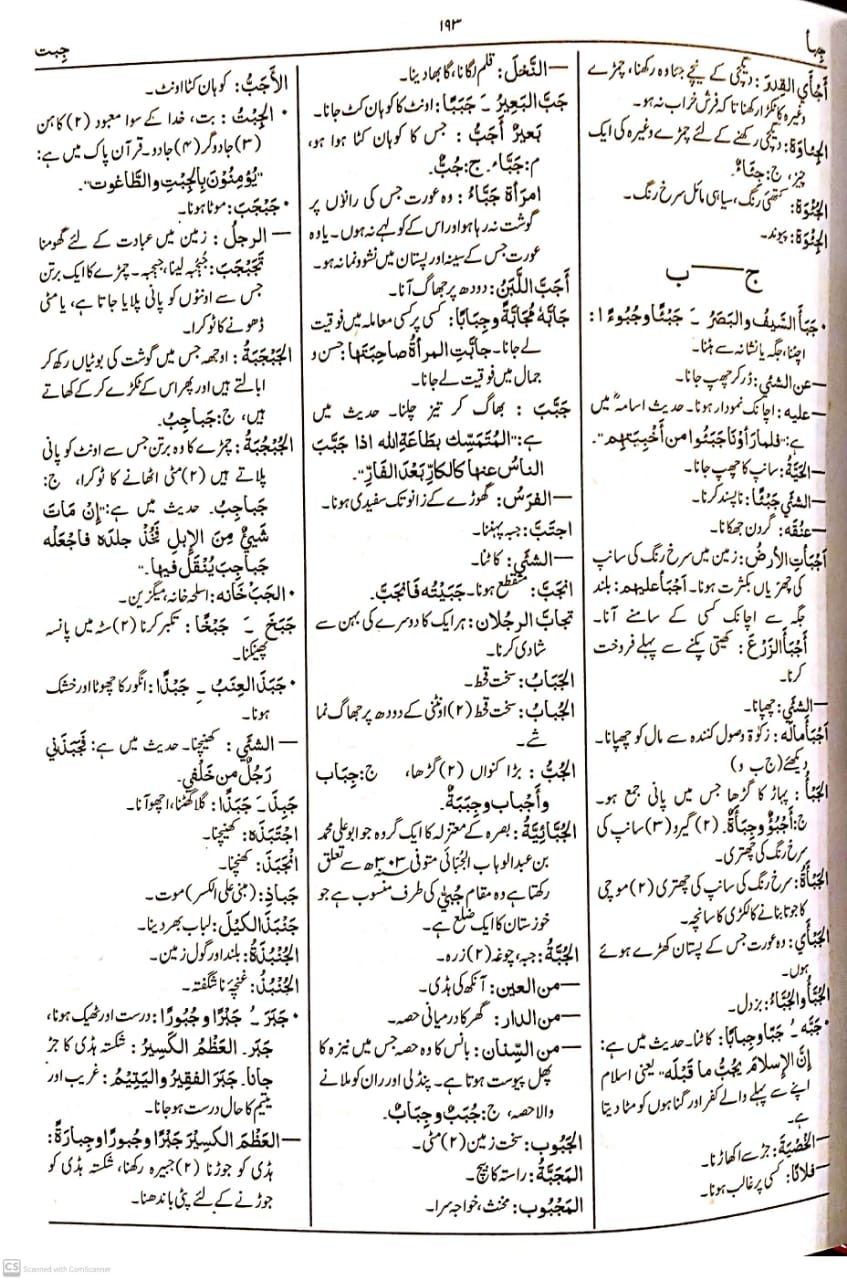 ۱۹۳
جِبأ
جِبت
أَجأَي القِدرَ: دیگچی کے نیچے جئاوہ رکھنا، چمڑے
وغیرہ کا ٹکڑا رکھنا تاکہ فرش خراب نہ ہو۔
الجِئاوَة: دیگچی رکھنے کے لئے چمڑے وغیرہ کی ایک
چیز، ج: جِئاءٌ۔
الجُئوَة: کتھئی رنگ، سیاہی مائل سرخ رنگ۔
الجِئوَة: پیوند۔
ج — ب
• جَبَأ السَّيفُ والبَصَرُ ـَ جَبْئًا وجُبُوءًا:
اچٹنا، جگہ یا نشانہ سے ہٹنا۔
— عن الشئي: ڈر کر چھپ جانا۔
— عليه: اچانک نمودار ہونا۔ حدیث اسامہؓ میں
ہے: "فلما رأونا جَبَئُوا من أَخْبِيَتِهِم"۔
— الحَيَّةُ: سانپ کا چھپ جانا۔
— الشئي جَبْئًا: ناپسند کرنا۔
— عنقه: گردن جھکانا۔
أَجْبَأتِ الأرضُ: زمین میں سرخ رنگ کی سانپ
کی چھتریاں بکثرت ہونا۔ أَجْبَأ عليهم: بلند
جگہ سے اچانک کسی کے سامنے آنا۔
أَجْبَأ الزَّرْعَ: کھیتی پکنے سے پہلے فروخت
کرنا۔
— الشئي: چھپانا۔
أَجْبَأ مالَه: زکوٰۃ وصول کنندہ سے مال کو چھپانا۔
دیکھئے (ج ب و)
الجَبْأ: پہاڑ کا گڑھا جس میں پانی جمع ہو۔
ج: أَجْبُؤٌ وجِبَأَةٌ۔ (۲) گیرو (۳) سانپ کی
سرخ رنگ کی چھتری۔
الجَبْأَة: سرخ رنگ کی سانپ کی چھتری (۲) موچی
کا جوتا بنانے کا لکڑی کا سانچہ۔
الجَبْأَي: وہ عورت جس کے پستان کھڑے ہوئے
ہوں۔
الجُبَّأُ والجُبَّاءُ: بزدل۔
• جَبَّه ـُ جَبًّا وجِبابًا: کاٹنا۔ حدیث میں ہے:
إنَّ الإسلامَ يَجُبُّ ما قَبْلَه" یعنی اسلام
اپنے سے پہلے والے کفر اور گناہوں کو مٹا دیتا
ہے۔
— الخُصْيَةَ: جڑ سے اکھاڑنا۔
— فلانًا: کسی پر غالب ہونا۔
— النَّخلَ: قلم لگانا، گابھا دینا۔
جَبَّ البَعِيرُ ـَ جَبَبًا: اونٹ کا کوہان کٹ جانا۔
بَعيرٌ أَجَبُّ: جس کا کوہان کٹا ہوا ہو،
م: جَبَّاءُ۔ ج: جُبٌّ۔
امرَأة جَبَّاءُ: وہ عورت جس کی رانوں پر
گوشت نہ رہا ہو اور اس کے کولہے نہ ہوں۔ یا وہ
عورت جس کے سینہ اور پستان میں نشوونما نہ ہو۔
أَجَبَّ اللَّبَنُ: دودھ پر جھاگ آنا۔
جابَّهُ مُجَابَّةً وجِبابًا: کسی پر کسی معاملہ میں فوقیت
لے جانا۔ جابَّتِ المرأةُ صاحِبَتَها: حسن و
جمال میں فوقیت لے جانا۔
جَبَّبَ: بھاگ کر تیز چلنا۔ حدیث میں
ہے: "المُتَمَسِّك بطاعَةِ الله اذا جَبَّبَ
الناسُ عنها كالكارِّ بَعْدَ الفَارِّ"۔
— الفرَسُ: گھوڑے کے زانو تک سفیدی ہونا۔
اجتَبَّ: جبہ پہننا۔
— الشئي: کاٹنا۔
انْجَبَّ: منقطع ہونا۔ جَبَبْتُه فَانْجَبَّ۔
تجابَّ الرجلان: ہر ایک کا دوسرے کی بہن سے
شادی کرنا۔
الجَبَابُ: سخت قحط۔
الجُبابُ: سخت قحط (۲) اونٹنی کے دودھ پر جھاگ نما
شے۔
الجُبُّ: بڑا کنواں (۲) گڑھا، ج: جِباب
وأجباب وجِبَبَةٌ۔
الجُبَّائِيَّةُ: بصرہ کے معتزلہ کا ایک گروہ جو ابوعلی محمد
بن عبدالوہاب الجُبّائی متوفی ۳۰۳ھ سے تعلق
رکھتا ہے وہ مقام جُبَّي کی طرف منسوب ہے جو
خوزستان کا ایک ضلع ہے۔
الجُبَّةُ: جبہ، چوغہ (۲) زرہ۔
— من العين: آنکھ کی ہڈی۔
— من الدار: گھر کا درمیانی حصہ۔
— من السِّنان: بانس کا وہ حصہ جس میں نیزہ کا
پھل پیوست ہوتا ہے۔ پنڈلی اور ران کو ملانے
والا حصہ، ج: جُبَبٌ وجِبابٌ۔
الجَبوب: سخت زمین (۲) مٹی۔
المَجَبَّةُ: راستہ کا بیچ۔
المَجْبُوب: مخنث، خواجہ سرا۔
الأَجَبُّ: کوہان کٹا اونٹ۔
• الجِبْتُ: بت، خدا کے سوا معبود (۲) کاہن
(۳) جادوگر (۴) جادو۔ قرآن پاک میں ہے:
"يُؤمِنُوْنَ بِالجِبْتِ والطَّاغوت"۔
• جَبْجَبَ: موٹا ہونا۔
— الرجلُ: زمین میں عبادت کے لئے گھومنا
تَجَبْجَبَ: جُبجُبہ لینا، جبجبہ۔ چمڑے کا ایک برتن
جس سے اونٹوں کو پانی پلایا جاتا ہے، یا مٹی
ڈھونے کا ٹوکرا۔
الجَبْجَبَةُ: اوجھ جس میں گوشت کی بوٹیاں رکھ کر
ابالتے ہیں اور پھر اس کے ٹکڑے کر کے کھاتے
ہیں، ج: جَباجِبُ۔
الجُبْجُبَةُ: چمڑے کا وہ برتن جس سے اونٹ کو پانی
پلاتے ہیں (۲) مٹی اٹھانے کا ٹوکرا، ج:
جَباجِبُ۔ حدیث میں ہے: "إنْ مَاتَ
شَيئٌ مِنَ الإبلِ فَخُذْ جلدَه فاجْعَلْه
جَباجِبَ يُنْقَلُ فيها۔"
• الجَبْ خَانَه: اسلحہ خانہ، میگزین۔
جَبَخَ ـَ جَبْخًا: تکبر کرنا (۲) سٹہ میں پانسہ
پھینکنا۔
• جَبَذَ العِنَبُ ـِ جَبْذًا: انگور کا چھوٹا اور خشک
ہونا۔
— الشئي: کھینچنا۔ حدیث میں ہے: فَجَبَذَني
رَجُلٌ من خَلْفي۔
جَبِذَ ـَ جَبَذًا: گلا گھٹنا، اچھو آنا۔
اجْتَبَذَه: کھینچنا۔
انْجَبَذَ: کھنچنا۔
جَباذِ: (مبنی علی الکسر) موت۔
جَنْبَذَ الكَيْلَ: لبالب بھر دینا۔
الجُنْبُذَةُ: بلند اور گول زمین۔
الجُنْبُذُ: غنچۂ ناشگفتہ۔
• جَبَرَ ـُ جَبْرًا وجُبورًا: درست اور ٹھیک ہونا،
جَبَر۔ العَظْمُ الكَسِيرُ: شکستہ ہڈی کا جڑ
جانا۔ جَبَرَ الفقِيرُ واليَتِيمُ: غریب اور
یتیم کا حال درست ہو جانا۔
— العَظْمَ الكسِيْرَ جَبْرًا وجُبورًا وجِبارَةً:
ہڈی کو جوڑنا (۲) جبیرہ رکھنا، شکستہ ہڈی کو
جوڑنے کے لئے پٹی باندھنا۔
CS Scanned with CamScanner